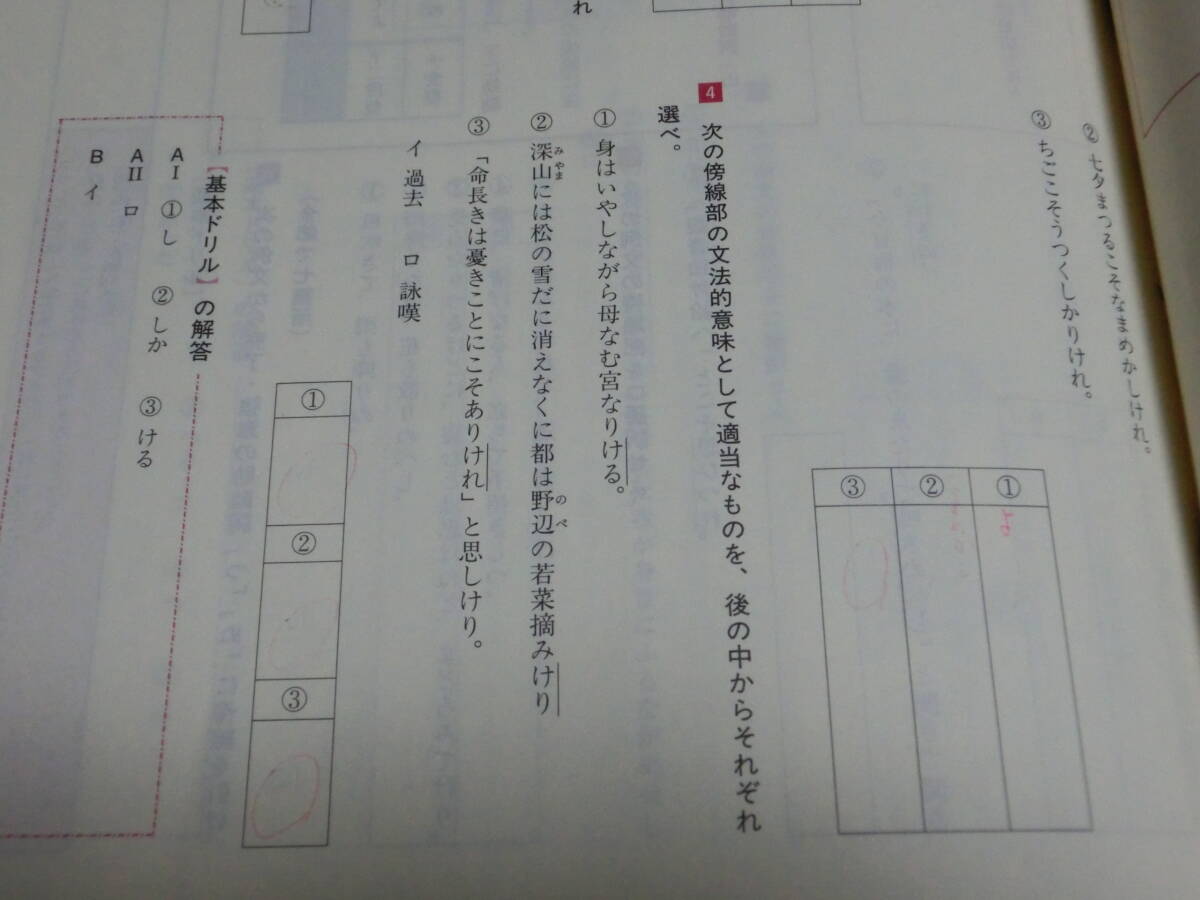 れ
② 七夕まつるこそなまめかしけれ。
③ ちごこそうつくしかりけれ。
①
②
③
4 次の傍線部の文法的意味として適当なものを、後の中からそれぞれ
選べ。
① 身はいやしながら母なむ宮なりける。
② 深山には松の雪だに消えなくに都は野辺の若菜摘みけり
みやま
のべ
③ 「命長きは憂きことにこそありけれ」と思しけり。
イ 過去 ロ 詠嘆
①
②
③
【基本ドリル】の解答
AⅠ ①し ②しか ③ける
AⅡ ロ
B イ